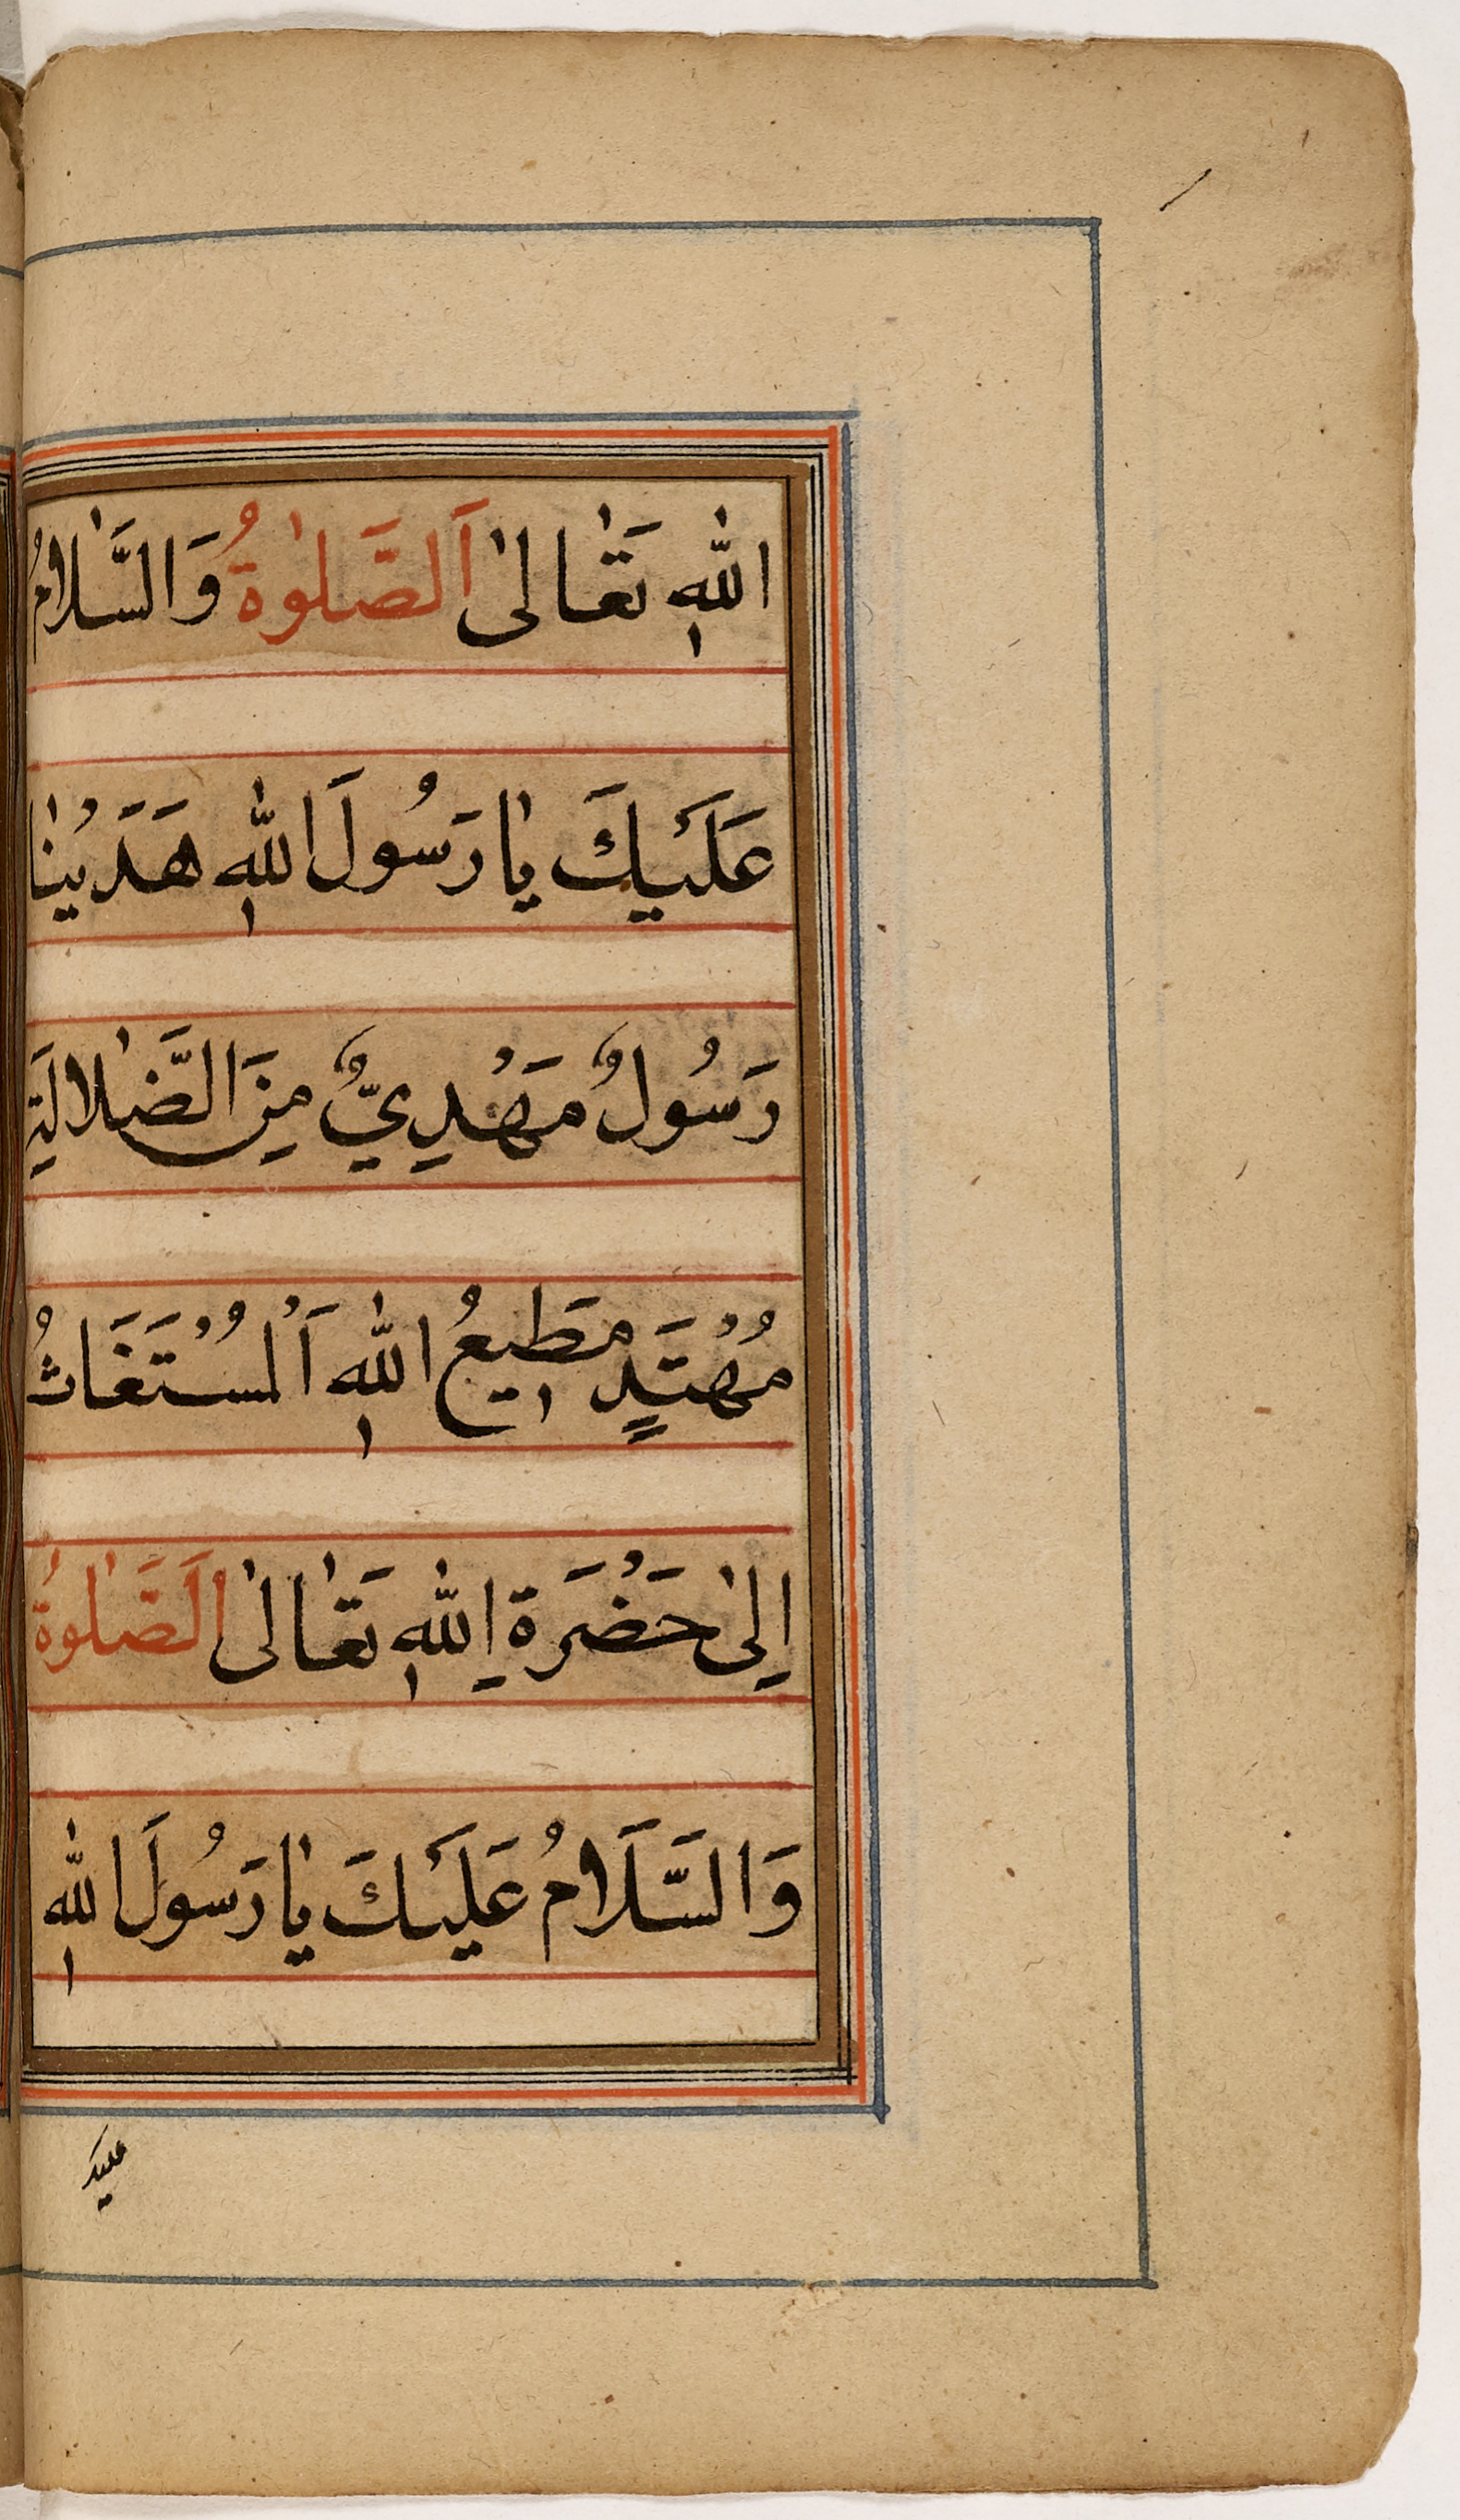 اللّٰهِ تَعَالٰى اَلصَّلٰوةُ وَالسَّلَامُ
عَلَيْكَ يَا رَسُولَ اللّٰهِ هَدَيْنَا
رَسُولٌ مَهْدِيٌّ مِنَ الضَّلَالَةِ
مُهْتَدٍ مَطِيعُ اللّٰهِ اَلْمُسْتَغَاثُ
اِلٰى حَضْرَةِ اللّٰهِ تَعَالٰى اَلصَّلٰوةُ
وَالسَّلَامُ عَلَيْكَ يَا رَسُولَ اللّٰهِ
عليك